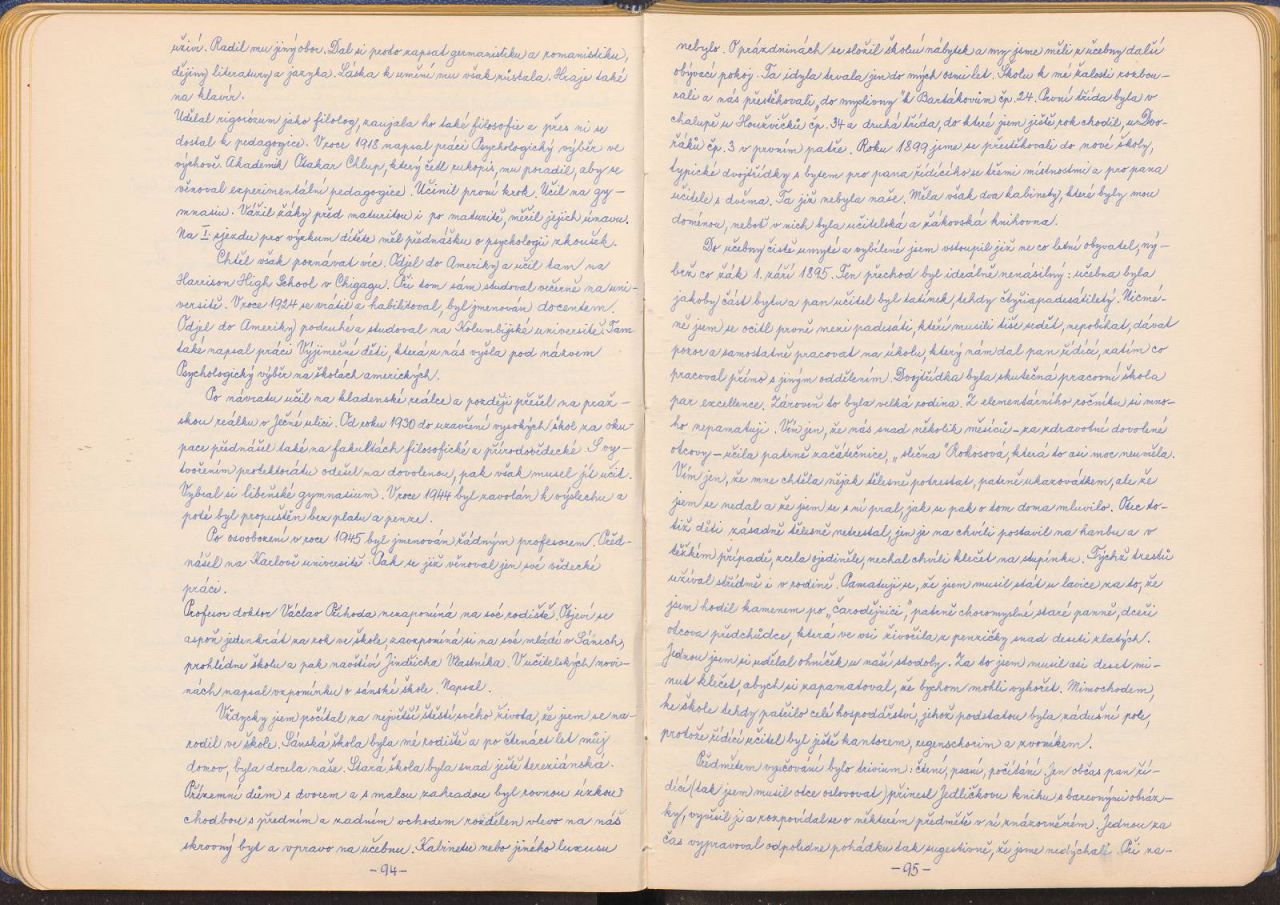 uživí. Radil mu jiný obor. Dal si proto zapsat germanistiku a romanistiku,
dějiny literatury a jazyka. Láska k umění mu však zůstala. Hraje také
na klavír.
Udělal rigorózum jako filolog, zaujala ho také filosofie a přes ni se
dostal k pedagogice. V roce 1918 napsal práci Psychologický výběr ve
výchově. Akademik Otakar Chlup, který četl rukopis, mu poradil, aby se
věnoval experimentální pedagogice. Učinil první krok. Učil na gy-
mnasiu. Vážil žáky před maturitou i po maturitě, měřil jejich únavu.
Na I. sjezdu pro výzkum dítěte měl přednášku o psychologii zkoušek.
Chtěl však poznávat víc. Odjel do Ameriky a učil tam na
Harrison High School v Chigagu. Při tom sám studoval večerně na uni-
versitě. V roce 1924 se vrátil a habilitoval, byl jmenován docentem.
Odjel do Ameriky podruhé a studoval na Kolumbijské universitě. Tam
také napsal práci Výjimečné děti, která u nás vyšla pod názvem
Psychologický výběr na školách amerických.
Po návratu učil na kladenské reálce a později přešel na praž-
skou reálku v Ječné ulici. Od roku 1930 do uzavření vysokých škol za oku-
pace přednášel také na fakultách filosofické a přírodovědecké. S vy-
tvořením protektorátu odešel na dovolenou, pak však musel jít učit.
Vybral si libeňské gymnasium. V roce 1944 byl zavolán k výslechu a
poté byl propuštěn bez platu a penze.
Po osvobození v roce 1945 byl jmenován řádným profesorem. Před-
nášel na Karlově universitě. Pak se již věnoval jen své vědecké
práci.
Profesor doktor Václav Příhoda nezapomíná na své rodiště. Objeví se
aspoň jedenkrát za rok ve škole, zavzpomíná si na své mládí v Sánech,
prohlédne školu a pak navštíví Jindřicha Vlastníka. V učitelských novi-
nách napsal vzpomínku o sánské škole. Napsal.
Vždycky jsem počítal za největší štěstí svého života, že jsem se na-
rodil ve škole. Sánská škola byla mé rodiště a po čtrnáct let můj
domov, byla docela naše. Stará škola byla snad ještě tereziánská.
Přízemní dům s dvorem a s malou zahradou byl rovnou úzkou
chodbou s předním a zadním vchodem rozdělen vlevo na náš
skrovný byt a vpravo na učebnu. Kabinetu nebo jiného luxusu
-94-
nebylo. O prázdninách se složil školní nábytek a my jsme měli z učebny další
obývací pokoj. Ta idyla trvala jen do mých osmi let. Školu k mé žalosti rozbou-
rali a nás přestěhovali „do myslivny" k Bartákovům čp. 24. První třída byla v
chalupě u Houžvičků čp. 34 a druhá třída, do které jsem ještě rok chodil, u Dvo-
řáků čp. 3 v prvním patře. Roku 1899 jsme se přestěhovali do nové školy,
typické dvojtřídky s bytem pro pana řídícího se třemi místnostmi a pro pana
učitele s dvěma. Ta již nebyla naše. Měla však dva kabinety, které byly mou
doménou, neboť v nich byla učitelská a žákovská knihovna.
Do učebny čistě umyté a vybílené jsem vstoupil již ne co letní obyvatel, ný-
brž co žák 1. září 1895. Ten přechod byl ideálně nenásilný: učebna byla
jakoby část bytu a pan učitel byl tatínek tehdy čtyřiapadesátiletý. Nicmé-
ně jsem se ocitl prvně mezi padesáti, kteří musili tiše sedět, nepobíhat, dávat
pozor a samostatně pracovat na úkolu, který nám dal pan řídící, zatím co
pracoval přímo s jiným oddělením. Dvojtřídka byla skutečná pracovní škola
par excellence. Zároveň to byla velká rodina. Z elementárního ročníku si mno-
ho nepamatuji. Vím jen, že nás snad několik měsíců - za zdravotní dovolené
otcovy - učila patrně začátečnice, „slečna" Rokosová, která to asi moc neuměla.
Vím jen, že mne chtěla nějak tělesně potrestat, patrně ukazovátkem, ale že
jsem se nedal a že jsem se s ní pral, jak se pak o tom doma mluvilo. Otec to-
tiž děti zásadně tělesně netrestal, jen je na chvíli postavil na hanbu a v
těžkém případě, zcela ojediněle, nechal chvíli klečet na stupínku. Týchž trestů
užíval střídmě i v rodině. Pamatuji se, že jsem musil stát u lavice za to, že
jsem hodil kamenem po „čarodějnici", patrně choromyslné staré panně, dceři
otcova předchůdce, která ve vsi živořila z penzičky snad deseti zlatých.
Jednou jsem si udělal ohníček u naší stodoly. Za to jsem musil asi deset mi-
nut klečet, abych si zapamatoval, že bychom mohli vyhořet. Mimochodem,
ke škole tehdy patřilo celé hospodářství, jehož podstatou byla zádušní pole,
protože řídící učitel byl ještě kantorem, regenschorim a zvoníkem.
Předmětem vyučování bylo trivium: čtení, psaní, počítání. Jen občas pan ří-
dící (tak jsem musil otce oslovovat) přinesl Jedličkovu knihu s barevnými obráz-
ky, vyvěsil ji a rozpovídal se o některém předmětě v ní znázorněném. Jednou za
čas vypravoval odpoledne pohádku tak sugestivně, že jsme nedýchali. Při za-
-95-